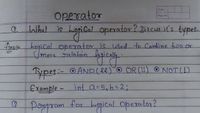 Operator
Q What is Logical operator? Discuss it's types
Ans Logical operator is used to Combine two or
more relation logically.
Types:- AND(&&) OR(||) NOT(!)
Example - int a=5, b=2;
Q Program for logical Operator?